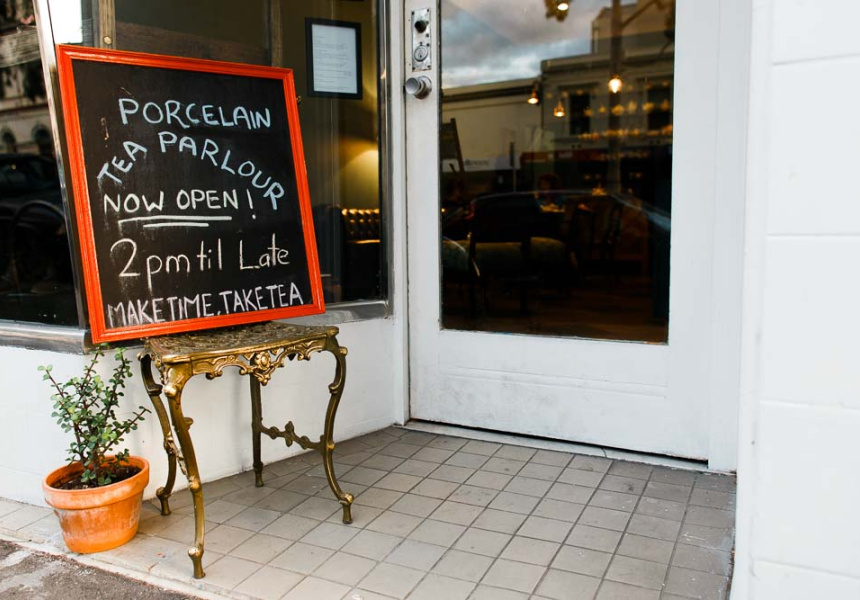 PORCELAIN
TEA PARLOUR
NOW OPEN!
2pm til Late
MAKE TIME, TAKE TEA